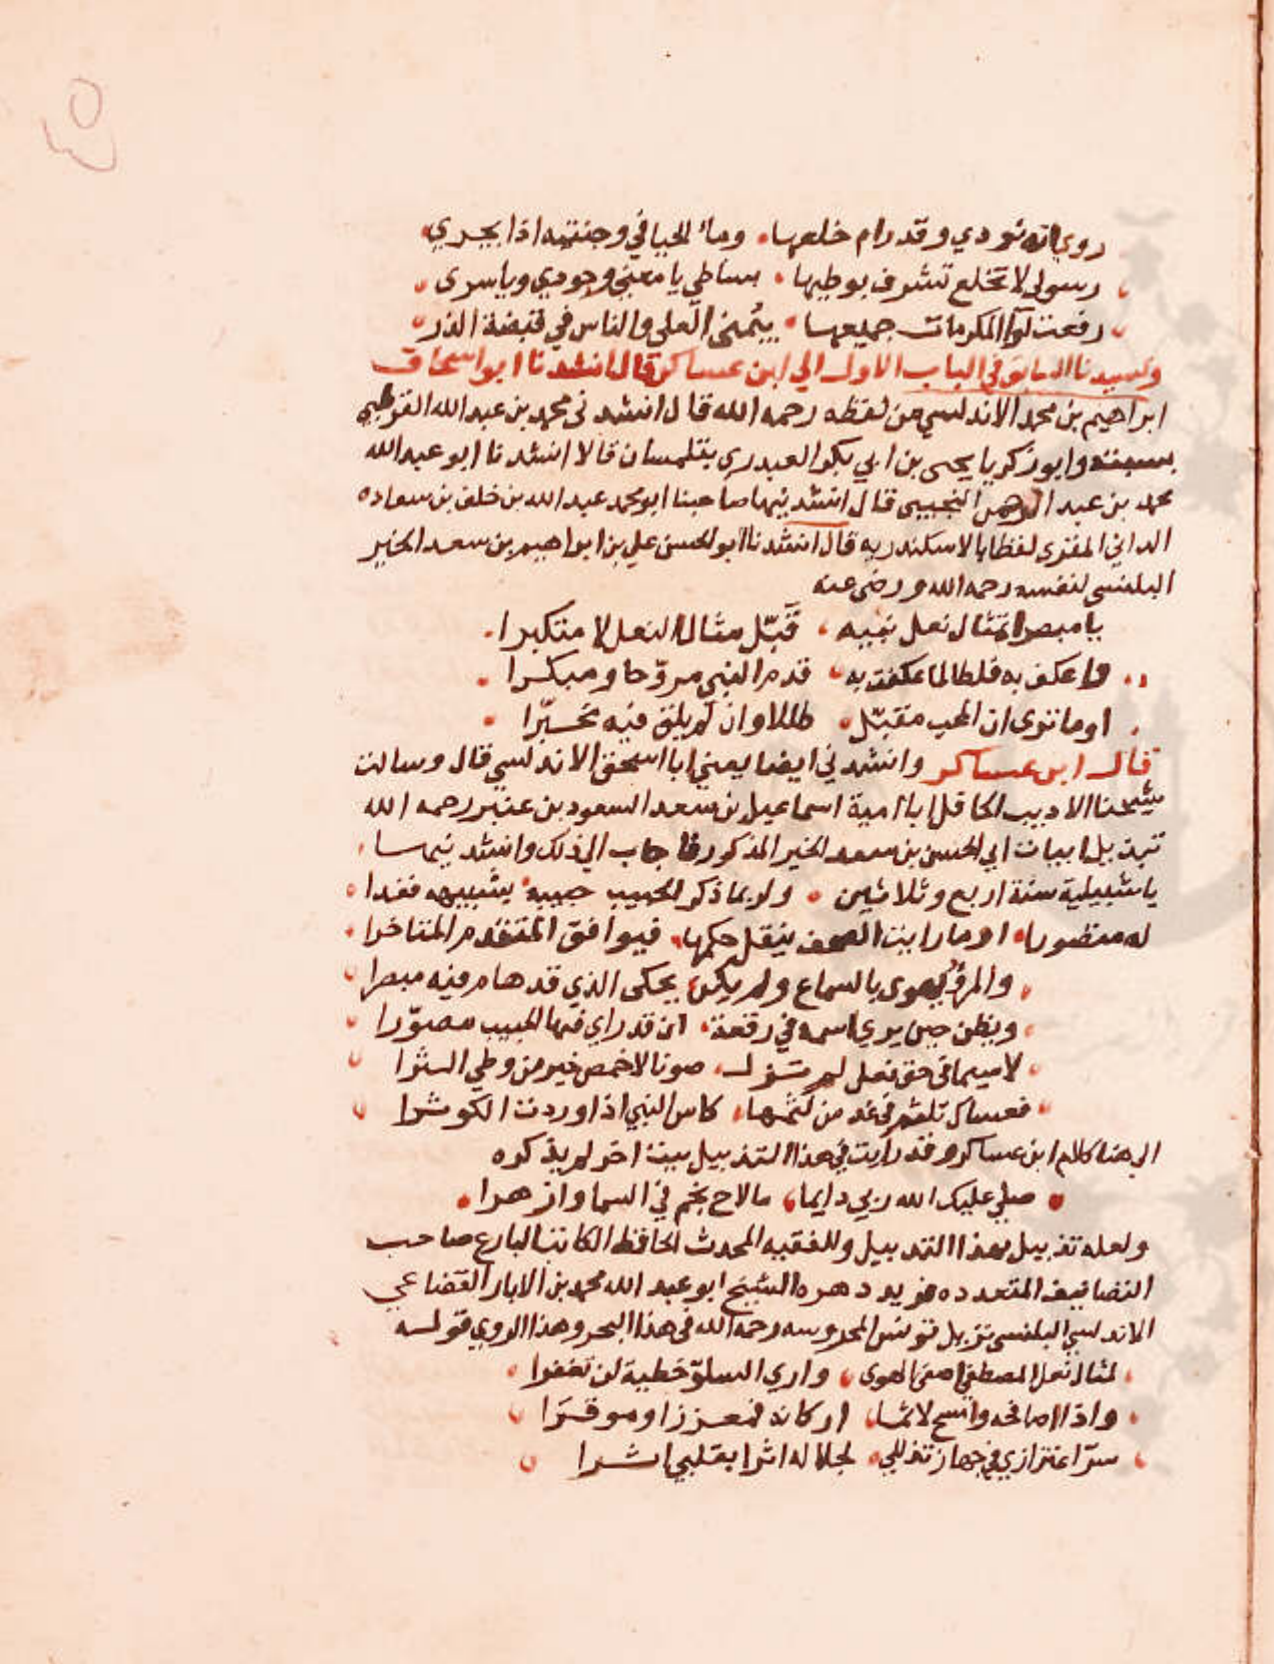 روي انه نودي وقد رام خلعها، وماء الحيا في وجنتيه اذا يجري
رسولي لا تخلع تشرف بوطيها، بساطي يا معني وجودي ويا سري
رفعت لوآ المكرمات جميعها، بيُمنى العلي والناس في قبضة الذر
وبسندنا السابق في الباب الاول الي ابن عساكر قال انشدنا ابو اسحاق
ابراهيم بن محمد الاندلسي من لفظه رحمه الله قال انشدني محمد بن عبد الله القرطبي
بسبته وابو زكريا يحيى بن ابي بكر العبدري بتلمسان قالا انشدنا ابو عبد الله
محمد بن عبد الرحمن التجيبي قال انشدنيها صاحبنا ابو محمد عبد الله بن خلف بن سعاده
الداني المقرى لفظا بالاسكندريه قال انشدنا ابو الحسن علي بن ابراهيم بن سعد الخير
البلنسي لنفسه رحمه الله ورضى عنه
يا مبصرا تمثال نعل نبيه، قَبّل مثال النعل لا متكبرا
واعكف به فلطالما عكفت به، قدم النبي مروّحا ومبكرا
او ما ترى ان المحب مقبّل، طللا وان لم يلق فيه مخبّرا
قال ابن عساكر وانشدني ايضا يعني ابا اسحق الاندلسي قال وسالت
شيخنا الاديب الحافل ابا امية اسماعيل بن سعد السعود بن عنبر رحمه الله
تذييل ابيات ابي الحسن بن سعد الخير المذكور فاجاب الي ذلك وانشدنيها
باشبيلية سنة اربع وثلاثين، ولربما ذكر الحبيب حبيبه بشبيهه فغدا
له متصورا، او ما رايت الصحف ينقل حكمها، فيوافق المتقدم المتاخرا
والمرؤ يهوى بالسماع ولم يكن، يحكى الذي قد هام فيه مبصرا
ويظن حين يري اسمه في رقعة، ان قد راي فيها الحبيب مصوّرا
لاسيما في حق نعل لم تزل، صونا لاخمص خير من وطي الثرا
فعساك تلثم في غد من لثمها، كاس النبي اذا وردت الكوثرا
الى هنا كلام ابن عساكر وقد رايت في هذا التذييل بيتا اخر لم يذكره
صلي عليك الله ربي دايما، ما لاح نجم في السما وازهرا
ولعله تذييل لهذا التذييل وللفقيه المحدث الحافظ الكاتب البارع صاحب
التصانيف المتعدده فريد دهره الشيخ ابو عبد الله محمد بن الابار القضاعي
الاندلسي البلنسي نزيل تونس المحروسه رحمه الله في هذا البحر وهذا الروي قوله
لمثال نعل المصطفي اصفي الهوى، واري السلوّ خطية لن تغفرا
واذا اصافحه وامسح لاثما، اركانه فمعززا وموقرا
سرّا اعتزازي في جهار تذللي، لجلاله اثرا بقلبي اثرا